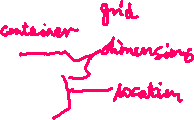 grid
container
dimensions
location